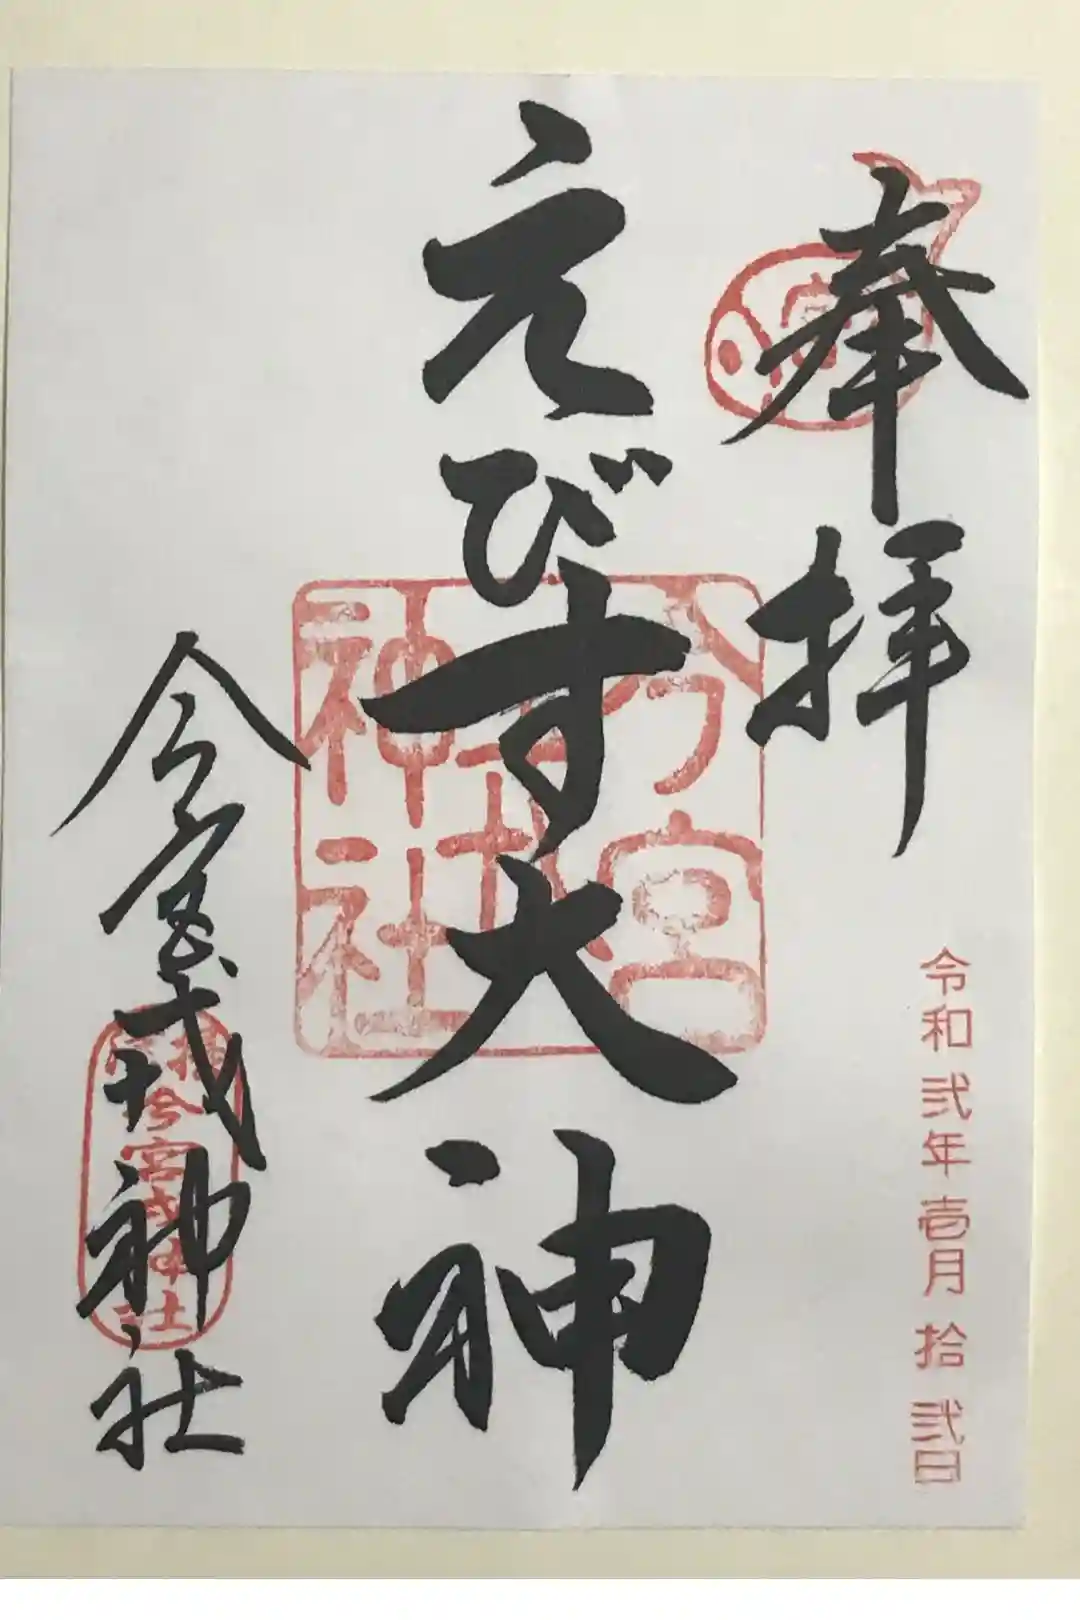 奉拝
令和弐年壱月拾弐日
えびす大神
今宮戎神社
今宮戎神社
今宮戎神社